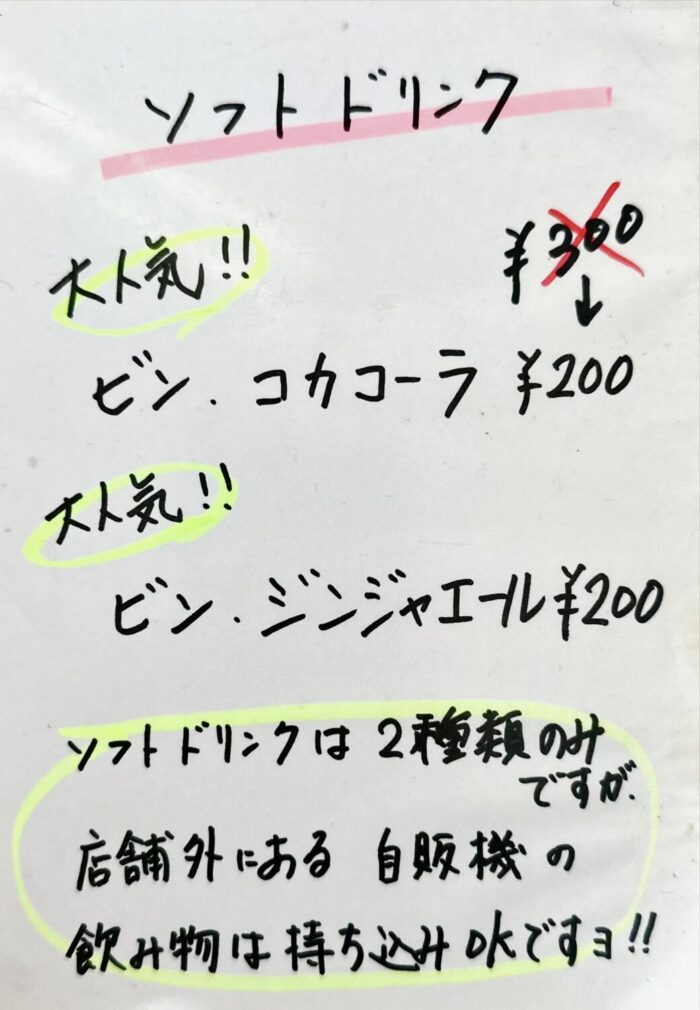 ソフトドリンク
大人気!!
¥300
↓
ビン.コカコーラ ¥200
大人気!!
ビン.ジンジャエール¥200
ソフトドリンクは 2種類のみ
ですが.
店舗外にある 自販機の
飲み物は持ち込みOKですヨ!!